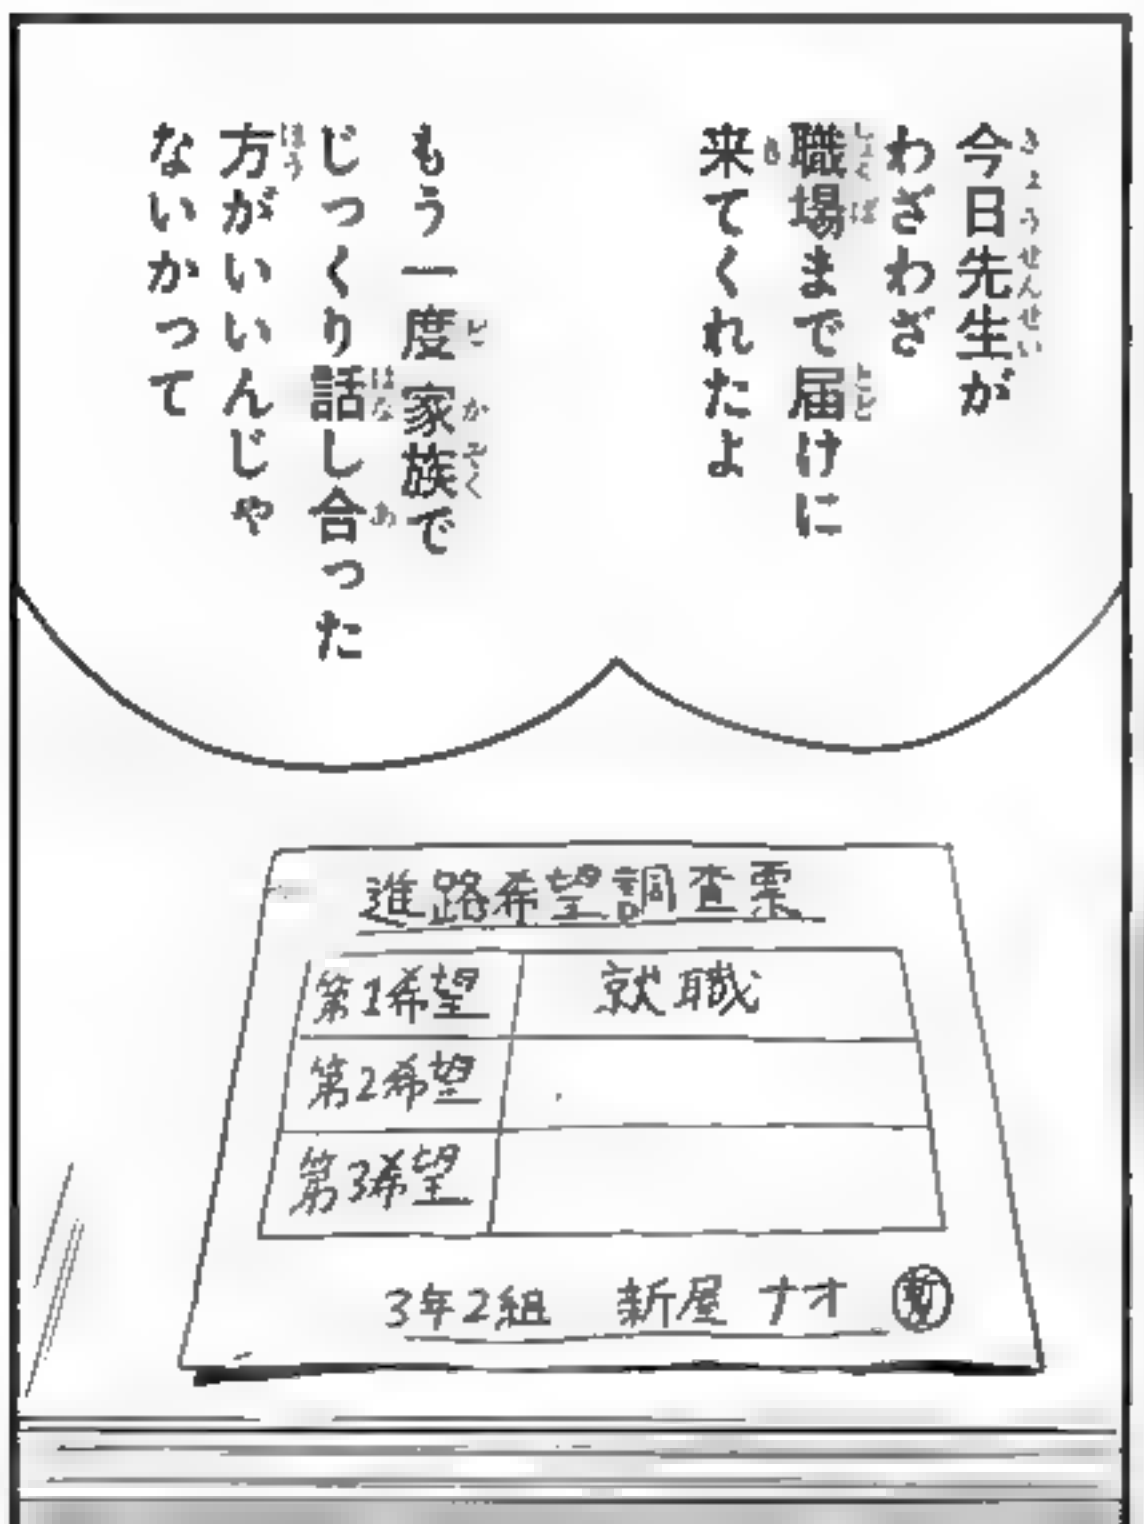 今日先生が
わざわざ
職場まで届けに
来てくれたよ
もう一度家族で
じっくり話し合った
方がいいんじゃ
ないかって
進路希望調査票
第1希望 就職
第2希望
第3希望
3年2組 新屋 ナオ 新